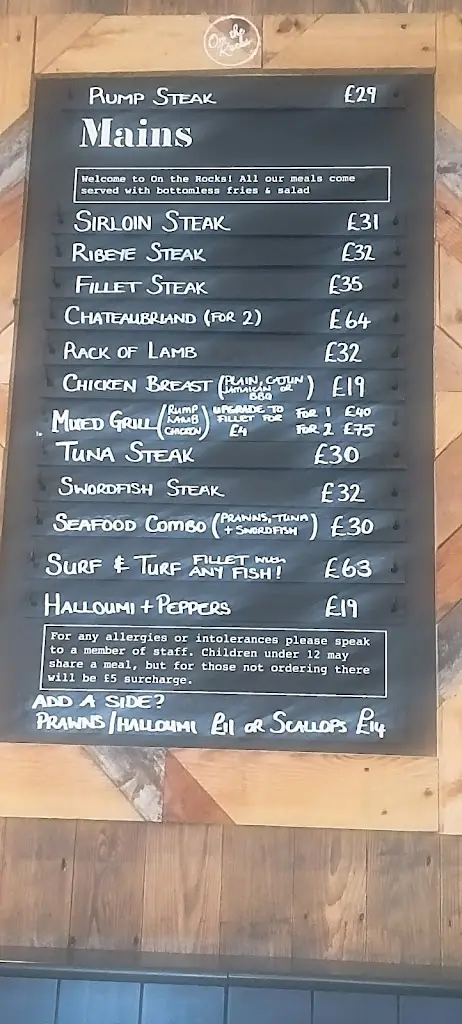 On the Rocks
RUMP STEAK £29
Mains
Welcome to On the Rocks! All our meals come
served with bottomless fries & salad
SIRLOIN STEAK £31
RIBEYE STEAK £32
FILLET STEAK £35
CHATEAUBRIAND (FOR 2) £64
RACK OF LAMB £32
CHICKEN BREAST (PLAIN, CAJUN JAMAICAN OR BBQ) £19
MIXED GRILL (RUMP LAMB CHICKEN) UPGRADE TO FILLET FOR £4 FOR 1 £40 FOR 2 £75
TUNA STEAK £30
SWORDFISH STEAK £32
SEAFOOD COMBO (PRAWNS, TUNA + SWORDFISH) £30
SURF & TURF FILLET WITH ANY FISH! £63
HALLOUMI + PEPPERS £19
For any allergies or intolerances please speak
to a member of staff. Children under 12 may
share a meal, but for those not ordering there
will be £5 surcharge.
ADD A SIDE?
PRAWNS/HALLOUMI £11 OR SCALLOPS £14